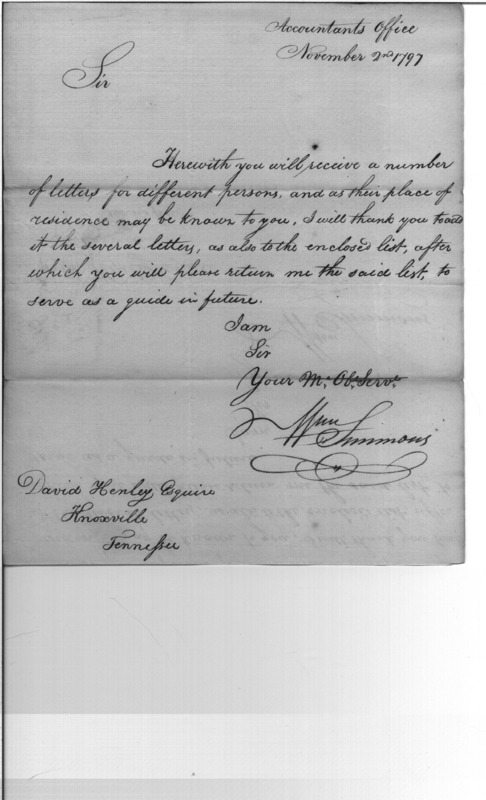 Accountants Office
November 2nd 1797
Sir
Herewith you will receive a number
of letters for different persons, and as their place of
residence may be known to you, I will thank you to add
it the several letters, as also to the enclosed list, after
which you will please return me the said list, to
serve as a guide in future.
I am
Sir
Your Mt. Obt. Servt.
Wm Simmons
David Henley, Esquire
Knoxville
Tennessee